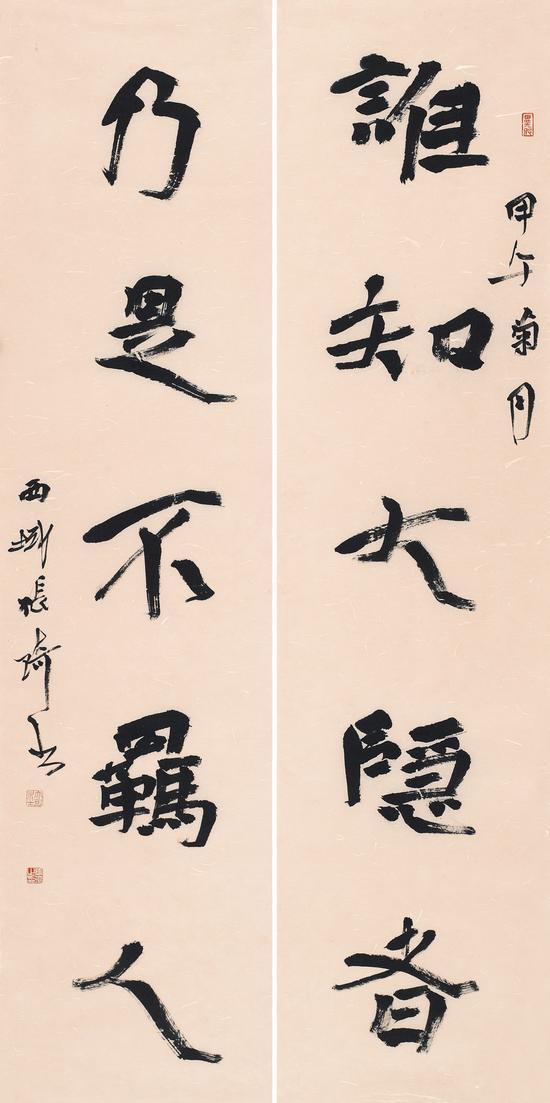 甲午菊月
誰知大隱者
乃是不羈人
西域張琦書